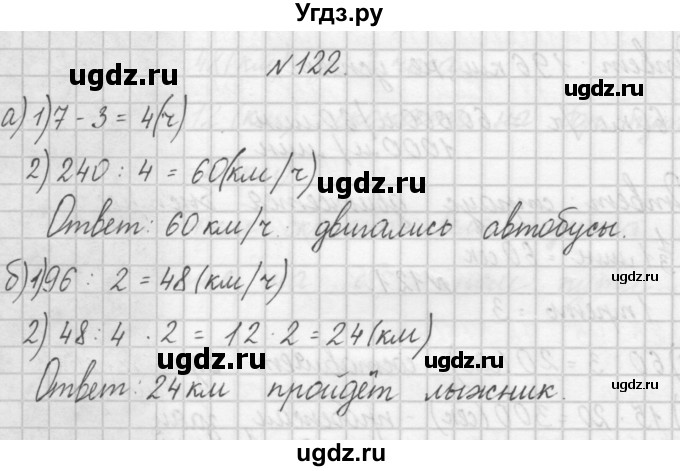 Угдз.ру
№122.
а) 1) 7 - 3 = 4(ч)
2) 240 : 4 = 60(км/ч)
Ответ: 60 км/ч двигались автобусы.
б) 1) 96 : 2 = 48 (км/ч)
2) 48 : 4 · 2 = 12 · 2 = 24 (км)
Ответ: 24 км пройдёт лыжник.
ugdz.ru
ugdz.ru
ugdz.ru
ugdz.ru
ugdz.ru
ugdz.ru
ugdz.ru
ugdz.ru